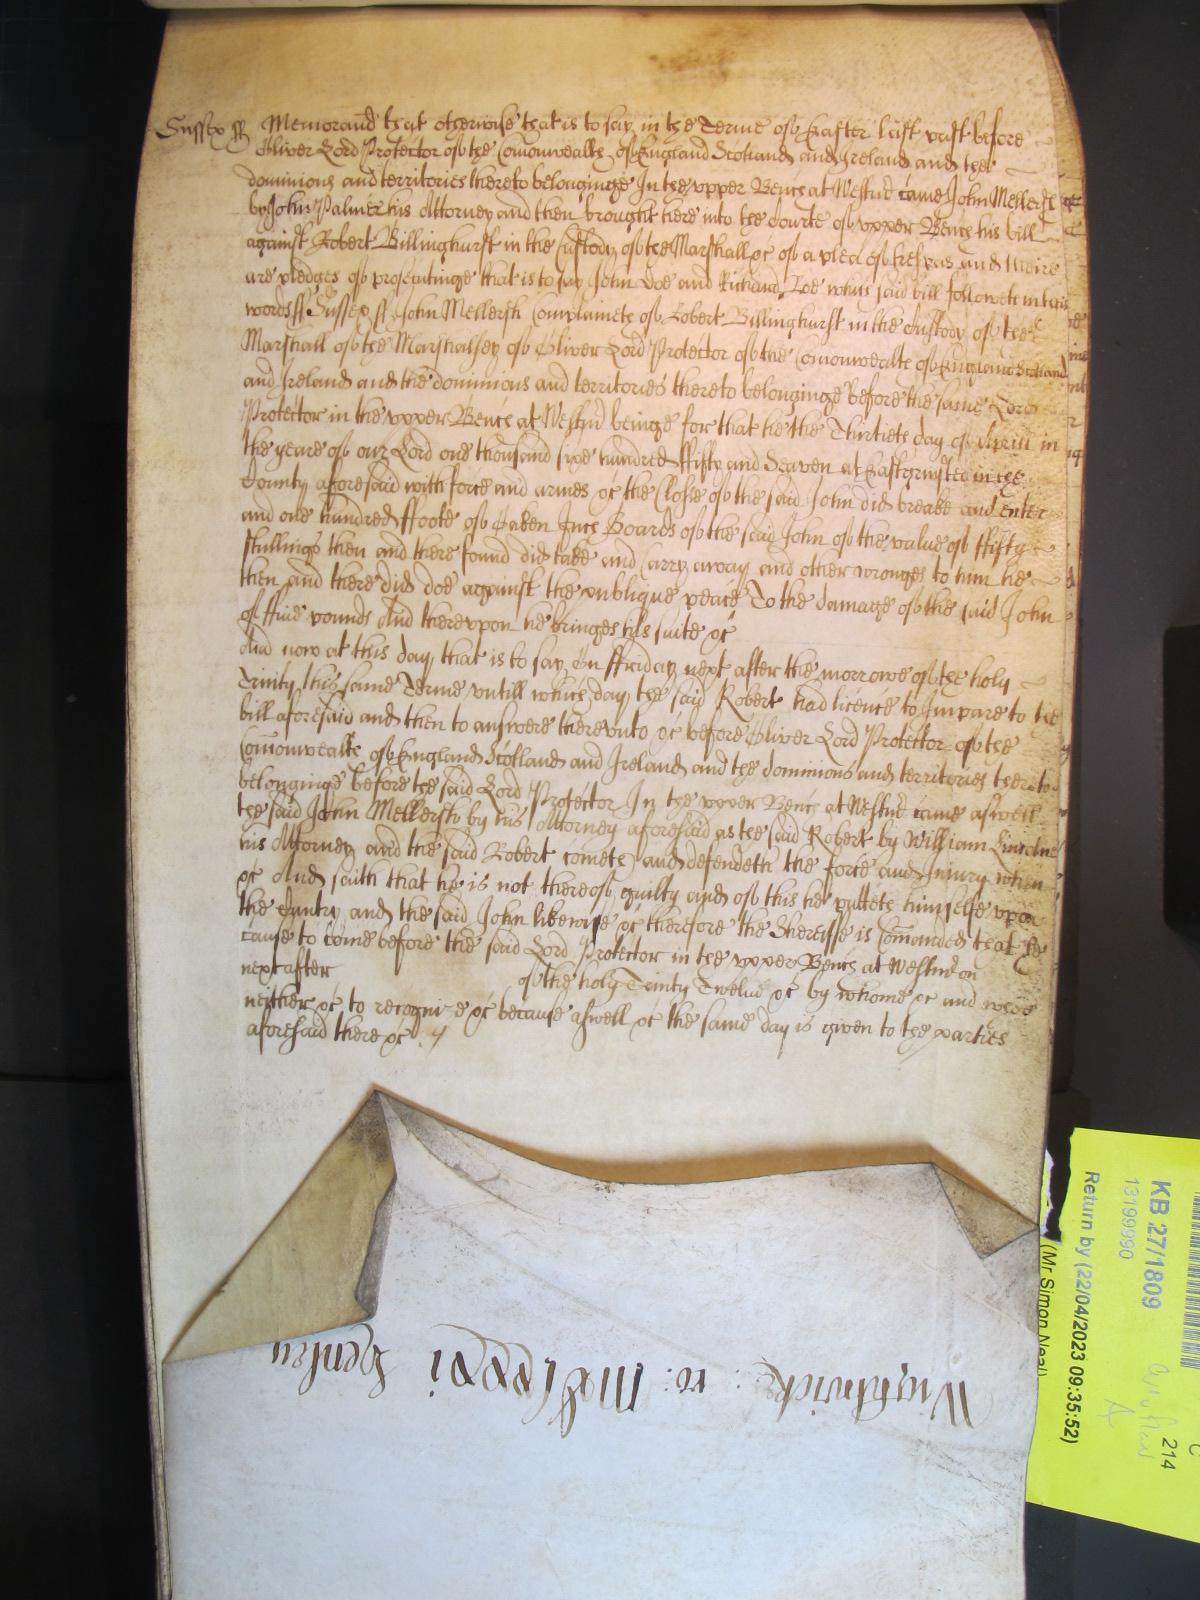 Sussex ss Memorand that otherwise that is to say in the Terme of Easter last past before
Oliver Lord Protector of the Comonwealth of England Scotland and Ireland and the
dominions and territories thereto belonginge In the vpper Bench at Westmr came John Mellersh
by John Palmer his Attorney and then brought here into the Courte of vpper Bench his bill
against Robert Billinghurst in the Custody of the Marshall &c of a plea of trespas And there
are pledges of prosecutinge that is to say John Doe and Richard Roe which said bill followeth in these
words ss Sussex ss John Mellersh Complaineth of Robert Billinghurst in the Custody of the
Marshall of the Marshalsey of Oliver Lord Protector of the Comonwealth of England Scotland
and Ireland and the dominions and territories thereto belonginge before the same Lord
Protector in the vpper Bench at Westmr beinge for that he the Thirtieth day of Aprill in
the yeare of our Lord one thousand six hundred ffifty and Seaven at Eastgrinsted in the
County aforesaid with force and armes &c the Close of the said John did breake and enter
and one hundred ffoote of Oaken Inch Boards of the said John of the value of ffifty
shillings then and there found did take and Carry away and other wronges to him he
then and there did doe against the publique peace To the damage of the said John
of ffiue pounds And therevpon he bringes his suite &c
And now at this day that is to say On ffriday next after the morrowe of the holy
Trinity this same Terme vntill which day the said Robert had licence to Impare to the
bill aforesaid and then to answere therevnto &c before Oliver Lord Protector of the
Comonwealth of England Scotland and Ireland and the dominions and territories thereto
belonginge before the said Lord Protector In the vpper Bench at Westmr came aswell
the said John Mellersh by his Attorney aforesaid as the said Robert by William Lincolne
his Attorney and the said Robert cometh and defendeth the force and Iniury when
&c And saith that he is not thereof guilty and of this he putteth himselfe vpon
the Cuntry and the said John likewise &c therefore the Shereiffe is Comanded that he
cause to come before the said Lord Protector in the vpper Bench at Westmr on
next after of the holy Trinity Twelue &c by whome &c and whoe
neither &c to recognise &c because aswell &c the same day is given to the parties
aforesaid there &c
Wightwicke : ro: Henley
KB 27/1809
13199990
Return by (22/04/2023 09:35:52)
(Mr Simon Neal)
C
214
A